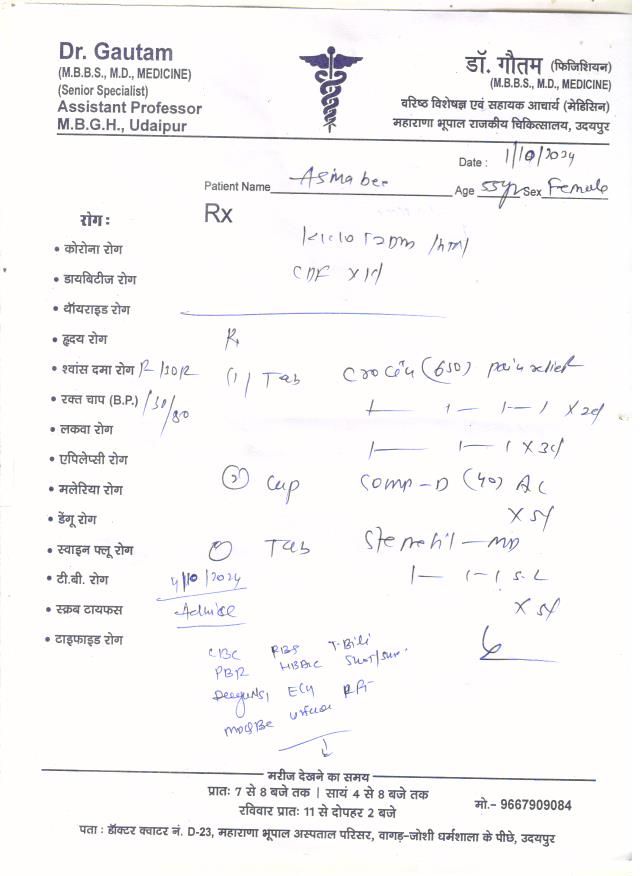 Dr. Gautam
(M.B.B.S., M.D., MEDICINE)
(Senior Specialist)
Assistant Professor
M.B.G.H., Udaipur
डॉ. गौतम (फिजिशियन)
(M.B.B.S., M.D., MEDICINE)
वरिष्ठ विशेषज्ञ एवं सहायक आचार्य (मेडिसिन)
महाराणा भूपाल राजकीय चिकित्सालय, उदयपुर
Date : 1/10/2024
Patient Name Asma bee Age 55yr Sex Female
Rx
रोग :
K/c/o T2DM /HTN
• कोरोना रोग
• डायबिटीज रोग
• थॉयराइड रोग
• हृदय रोग
• श्वांस दमा रोग
(1) Tab Crocin (650) pain relief
• रक्त चाप (B.P.) 130/80
1— 1— 1—1 X 2d
• लकवा रोग
1— 1—1 X 3d
• एपिलेप्सी रोग
• मलेरिया रोग
(2) Cap Comp-D (40) AC
X 5d
• डेंगू रोग
• स्वाइन फ्लू रोग
Tab Stemetil-MD
• टी.बी. रोग 4/10/2024
1— 1—1 S.L
X 5d
• स्क्रब टायफस Advise
• टाइफाइड रोग
CBC RBS T-Bili
PBF HBA1C SGOT/SGPT
Dengue NS1 ECG RFT
Urine
मरीज देखने का समय
प्रातः 7 से 8 बजे तक | सायं 4 से 8 बजे तक
रविवार प्रातः 11 से दोपहर 2 बजे
मो.- 9667909084
पता : डॉक्टर क्वाटर नं. D-23, महाराणा भूपाल अस्पताल परिसर, वागड़-जोशी धर्मशाला के पीछे, उदयपुर